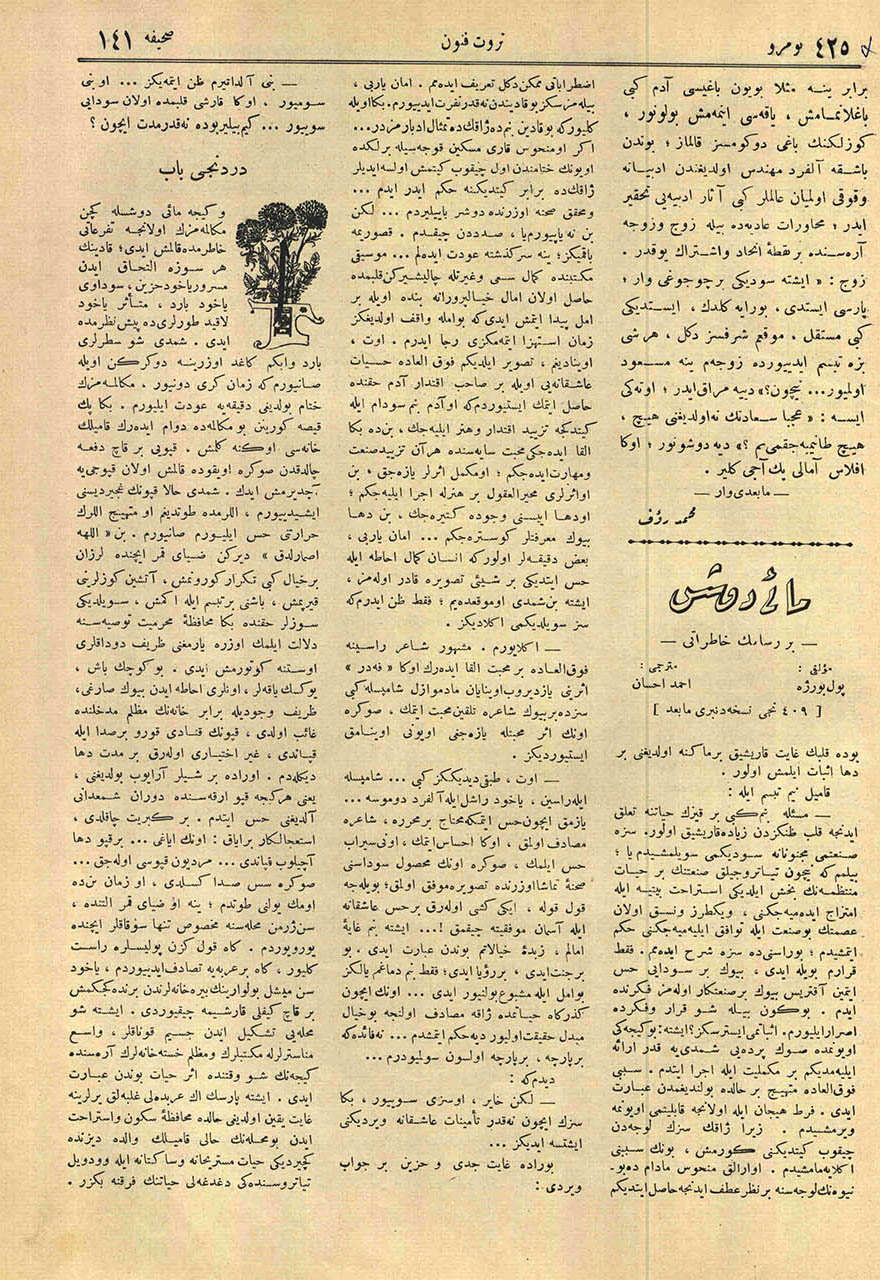 نومرو ٤٢٥
ثروت فنون
صحیفه ١٤١
برابر ینه مثلا بویون باغیسی آدم کبی
باغلانمامش ، یاقه‌سی اینمه‌مش بولونور ،
کوزلکنك باغی دوکومسز قالماز ؛ بوندن
باشقه آلفرد مهندس اولدیغندن ادبیاته
وقوفی اولمیان عالملر کبی آثار ادبیه‌یی تحقیر
ایدر ؛ محاورات عادیه‌ده بیله زوج وزوجه
آره‌سنده بر نقطهٔ اتحاد واشتراك یوقدر .
زوج : « ایشته سودیکی بر چوجوغی وار ؛
پارسی ایستدی ، بورایه کلدك ، ایستدیکی
کبی مستقل ، موقعم شرفسز دکل ، هر شی
بزه تبسم ایدییورده زوجه‌م ینه مسعود
اولمیور... نیچون؟» دییه مراق ایدر ؛ اوته‌کی
ایسه : « عجبا سعادتك نه اولدیغنی هیچ ،
هیچ طانیمیه‌جقمی‌یم ؟» دیه دوشونور ؛ اوکا
افلاس آمالی پك آجی کلیر .
— مابعدی وار —
محمد رؤف
مائی دوشس
— بر رسامك خاطراتی —
مؤلفی : مترجمی :
پول بورژه احمد احسان
[ ٤٠٩ نجی نسخه‌دنبری مابعد ]
بوده قلبك غایت قاریشیق بر ماکنه اولدیغنی بر
دها اثبات ایلمش اولور .
قامیل نیم تبسم ایله :
— مسئله بنم کبی بر قیزك حیاتنه تعلق
ایدنجه قلب ظنکزدن زیاده قاریشیق اولور. سزه
صنعتمی مجنونانه سودیکمی سویلمشیدم یا ؛
بیلمم که نیچون تیاتروجیلق صنعتنك بر حیات
منتظمه‌نك بخش ایلدیکی استراحت بیتیه ایله
امتزاج ایده‌میه‌جکنی ، ویکطرز ونسق اولان
عصمتك بو صنعت ایله توافق ایلیه‌میه‌جکنی حکم
ایتمشیدم ؛ بوراسنی ده سزه شرح ایده‌مم . فقط
قرارم بویله ایدی ، بیوك بر سودایی حس
ایتمین آقتریس بیوك بر صنعتکار اوله‌مز فکرنده
ایدم . بوکون بیله شو قرار وفکرده
اصرار ایلیورم. اثباتمی ایسترسکز؟ ایشته: بو کیجه‌کی
اویونمده صوك پرده‌یی شمدی‌یه قدر ارائه
ایلیه‌مدیکم بر مکملیت ایله اجرا ایتدم . سببی
فوق‌العاده متهیج بر حالده بولندیغمدن عبارت
ایدی . فرط هیجان ایله اولانجه قابلیتمی اویونمه
ویرمشیدم . زیرا ژاقك سزك لوجه‌دن
چیقوب کیتدیکنی کورمش ، بونك سببنی
اکلایه‌مامشیدم . اوارالق منحوس مادام ده‌بو-
نیوه‌نك لوجه‌سنه بر نظر عطف ایدنجه حاصل ایتدیکم
اضطراباتی ممکن دکل تعریف ایده‌مم . امان یاربی ،
بیله‌مزسکز بو قادیندن نه‌قدر نفرت ایدییورم. بکا اویله
کلیورکه بو قادین بنم ده ژاقك ده تمثال ادبارمزدر...
اکر او منحوس قاری مسکین قوجه‌سیله برلکده
اویونك ختامندن اول چیقوب کیتمش اولسه ایدیلر
ژاقك ده برابر کیتدیکنه حکم ایدر ایدم ...
ومحقق صحنه اوزرنده دوشر باییلیردم ... لکن
بن نه یاپیورم یا ، صددن چیقدم . قصوریمه
باقمیکز ؛ ینه سرکذشته عودت ایده‌لم ... موسیقی
مکتبنده کمال سعی وغیرتله چالیشیرکن قلبمده
حاصل اولان امال خیالپرورانه بنده اویله بر
امل پیدا ایتمش ایدی که بو امله واقف اولدیغکز
زمان استهزا ایتمه‌مکزی رجا ایدرم . اوت ،
اوینادیغم ، تصویر ایلدیکم فوق العاده حسیات
عاشقانه‌یی اویله بر صاحب اقتدار آدم حقنده
حاصل ایتمك ایستیوردم که او آدم بنم سودام ایله
کیتدکجه تزیید اقتدار وهنر ایلیه‌جك ، بن ده بکا
القا ایده‌جکی محبت سایه‌سنده هر آن تزیید صنعت
ومهارت ایده‌جکم ؛ او مکمل اثرلر یازه‌جق ، بن
او اثرلری محیرالعقول بر هنرله اجرا ایلیه‌جکم ؛
اودها ایییسنی وجوده کتیره‌جك ، بن دها
بیوك معرفتلر کوستره‌جکم ... امان یاربی ،
بعض دقیقه‌لر اولورکه انسان کمال احاطه ایله
حس ایتدیکی بر شیئی تصویره قادر اوله‌مز ،
ایشته بن شمدی او موقعده‌یم ؛ فقط ظن ایدرم که
سز سویلدیکمی اکلادیکز .
— اکلایورم . مشهور شاعر راسینه
فوق العاده بر محبت القا ایده‌رك اوکا « فه‌در »
اثرینی یازدیروب اوینایان مادموازل شامیسله کبی
سزده بر بیوك شاعره تلقین محبت ایتمك ، صوکره
اونك اثر محبتله یازه‌جغنی اویونی اوینامق
ایستیوردیکز .
— اوت ، طبقی دیدیککز کبی ... شامیسله
ایله راسین ، یاخود راشل ایله آلفرد دوموسه ...
یازمق ایچون حس ایتمکه محتاج بر محرره ، شاعره
مصادف اولمق ، اوکا احساس ایتمك ، اونی سیراب
حس ایلمك ، صوکره اونك محصول سوداسنی
صحنهٔ تماشا اوزرنده تصویره موفق اولمق؛ بویله‌جه
قول قوله ، ایکی کشی اوله‌رق بر حس عاشقانه
ایله آسمان موفقیته چیقمق !... ایشته بنم غایهٔ
امالم ، زبدهٔ خیالاتم بوندن عبارت ایدی . بو
بر جنت ایدی ، بر رؤیا ایدی؛ فقط بنم دماغم یالکز
بو امل ایله مشبوع بولنیور ایدی ... اونك ایچون
کذرکاه حیاتمده ژاقه مصادف اولنجه بو خیال
مبدل حقیقت اولیور دیه حکم ایتمشدم ... نه فائده که
بر پارچه ، بر پارچه اولسون سولیوردم ...
دیدم که :
— لکن خایر ، اوسزی سوییور ، بکا
سزك ایچون نه‌قدر تأمینات عاشقانه ویردیکنی
ایشتسه ایدیکز ...
بوراده غایت جدی و حزین بر جواب
ویردی :
— بنی آلداتیرم ظن ایتمه‌یکز ... او بنی
سومیور ، اوکا قارشی قلبمده اولان سودایی
سوییور ... کیم بیلیر بوده نه‌قدر مدت ایچون ؟
دردنجی باب
و کیجه مائی دوشسله کچن
مکالمه‌مزك اولانجه تفرعاتی
خاطرمده قالمش ایدی؛ قادینك
هر سوزه التحاق ایدن
مسرور یاخود حزین ، سوداوی
یاخود بارد ، متأثر یاخود
لاقید طورلری ده پیش نظرمده
ایدی . شمدی شو سطرلری
بارد وابکم کاغد اوزرینه دوکرکن اویله
صانیورم که زمان کری دونیور ، مکالمه‌مزك
ختام بولدیغی دقیقه‌یه عودت ایلیورم . بکا پك
قیصه کورینن بو مکالمه‌ده دوام ایده‌رك قامیلك
خانه‌سی اوکنه کلمش . قپویی بر قاچ دفعه
چالدقدن صوکره اویقوده قالمش اولان قپوجی‌یه
آچدیرمش ایدك . شمدی حالا قپونك غجیردیسنی
ایشیدییورم ، اللرمده طوتدیغم او متهیج اللرك
حرارتنی حس ایلیورم صانیورم . بن « اللهه
اصمارلدق » دیرکن ضیای قمر ایچنده لرزان
بر خیال کبی تکرار کورونمش ، آتشین کوزلرینی
قیرپمش ، باشنی بر تبسم ایله اکمش ، سویلدیکی
سوزلر حقنده بکا محافظهٔ محرمیت توصیه‌سنه
دلالت ایلمك اوزره پارمغنی ظریف دوداقلری
اوستنه کوتورمش ایدی . بو کوچك باش ،
یوکك یاقه‌لر ، اونلری احاطه ایدن بیوك صارغی،
ظریف وجودیله برابر خانه‌نك مظلم مدخلنده
غائب اولدی ، قپونك قنادی قورو بر صدا ایله
قپاندی ، غیر اختیاری اوله‌رق بر مدت دها
دیکله‌دم . اوراده بر شیلر آرایوب بولدیغنی ،
یعنی هر کیجه قپو ارقه‌سنده دوران شمعدانی
آلدیغنی حس ایتدم . بر کبریت چاقلدی ،
استعجالکار بر ایاق : اونك ایاغی ... بر قپو دها
آچیلوب قپاندی ... مردیون قپوسی اوله‌جق ...
صوکره سس صدا کسلدی ، او زمان بن ده
اومك یولنی طوتدم ؛ ینه او ضیای قمر التنده ،
سن ژرمن محله‌سنه مخصوص تنها سوقاقلر ایچنده
یورویوردم . کاه قول کزن پولیسلره راست
کلیور ، کاه بر عربه‌یه تصادف ایدییوردم ، یاخود
سن میشل بولوارینك بیره‌خانه‌لرندن برنده کچیکمش
بر قاچ کیفلی قارشیمه چیقیوردی . ایشته شو
محله‌یی تشکیل ایدن جسیم قوناقلر ، واسع
مناسترلرله مکتبلرك ومظلم خسته‌خانه‌لرك آره‌سنده
کیجه‌نك شو وقتنده اثر حیات بوندن عبارت
ایدی . ایشته پارسك اك عربده‌لی غلبه‌لق یرلرینه
غایت یقین اولدیغی حالده محافظهٔ سکون واستراحت
ایدن بو محله‌نك حالی قامیلك والده دیزنده
کچیردیکی حیات مستریحانه وساکتانه ایله وودویل
تیاتروسنده‌کی دغدغه‌لی حیاتنك فرقنه بکزر .